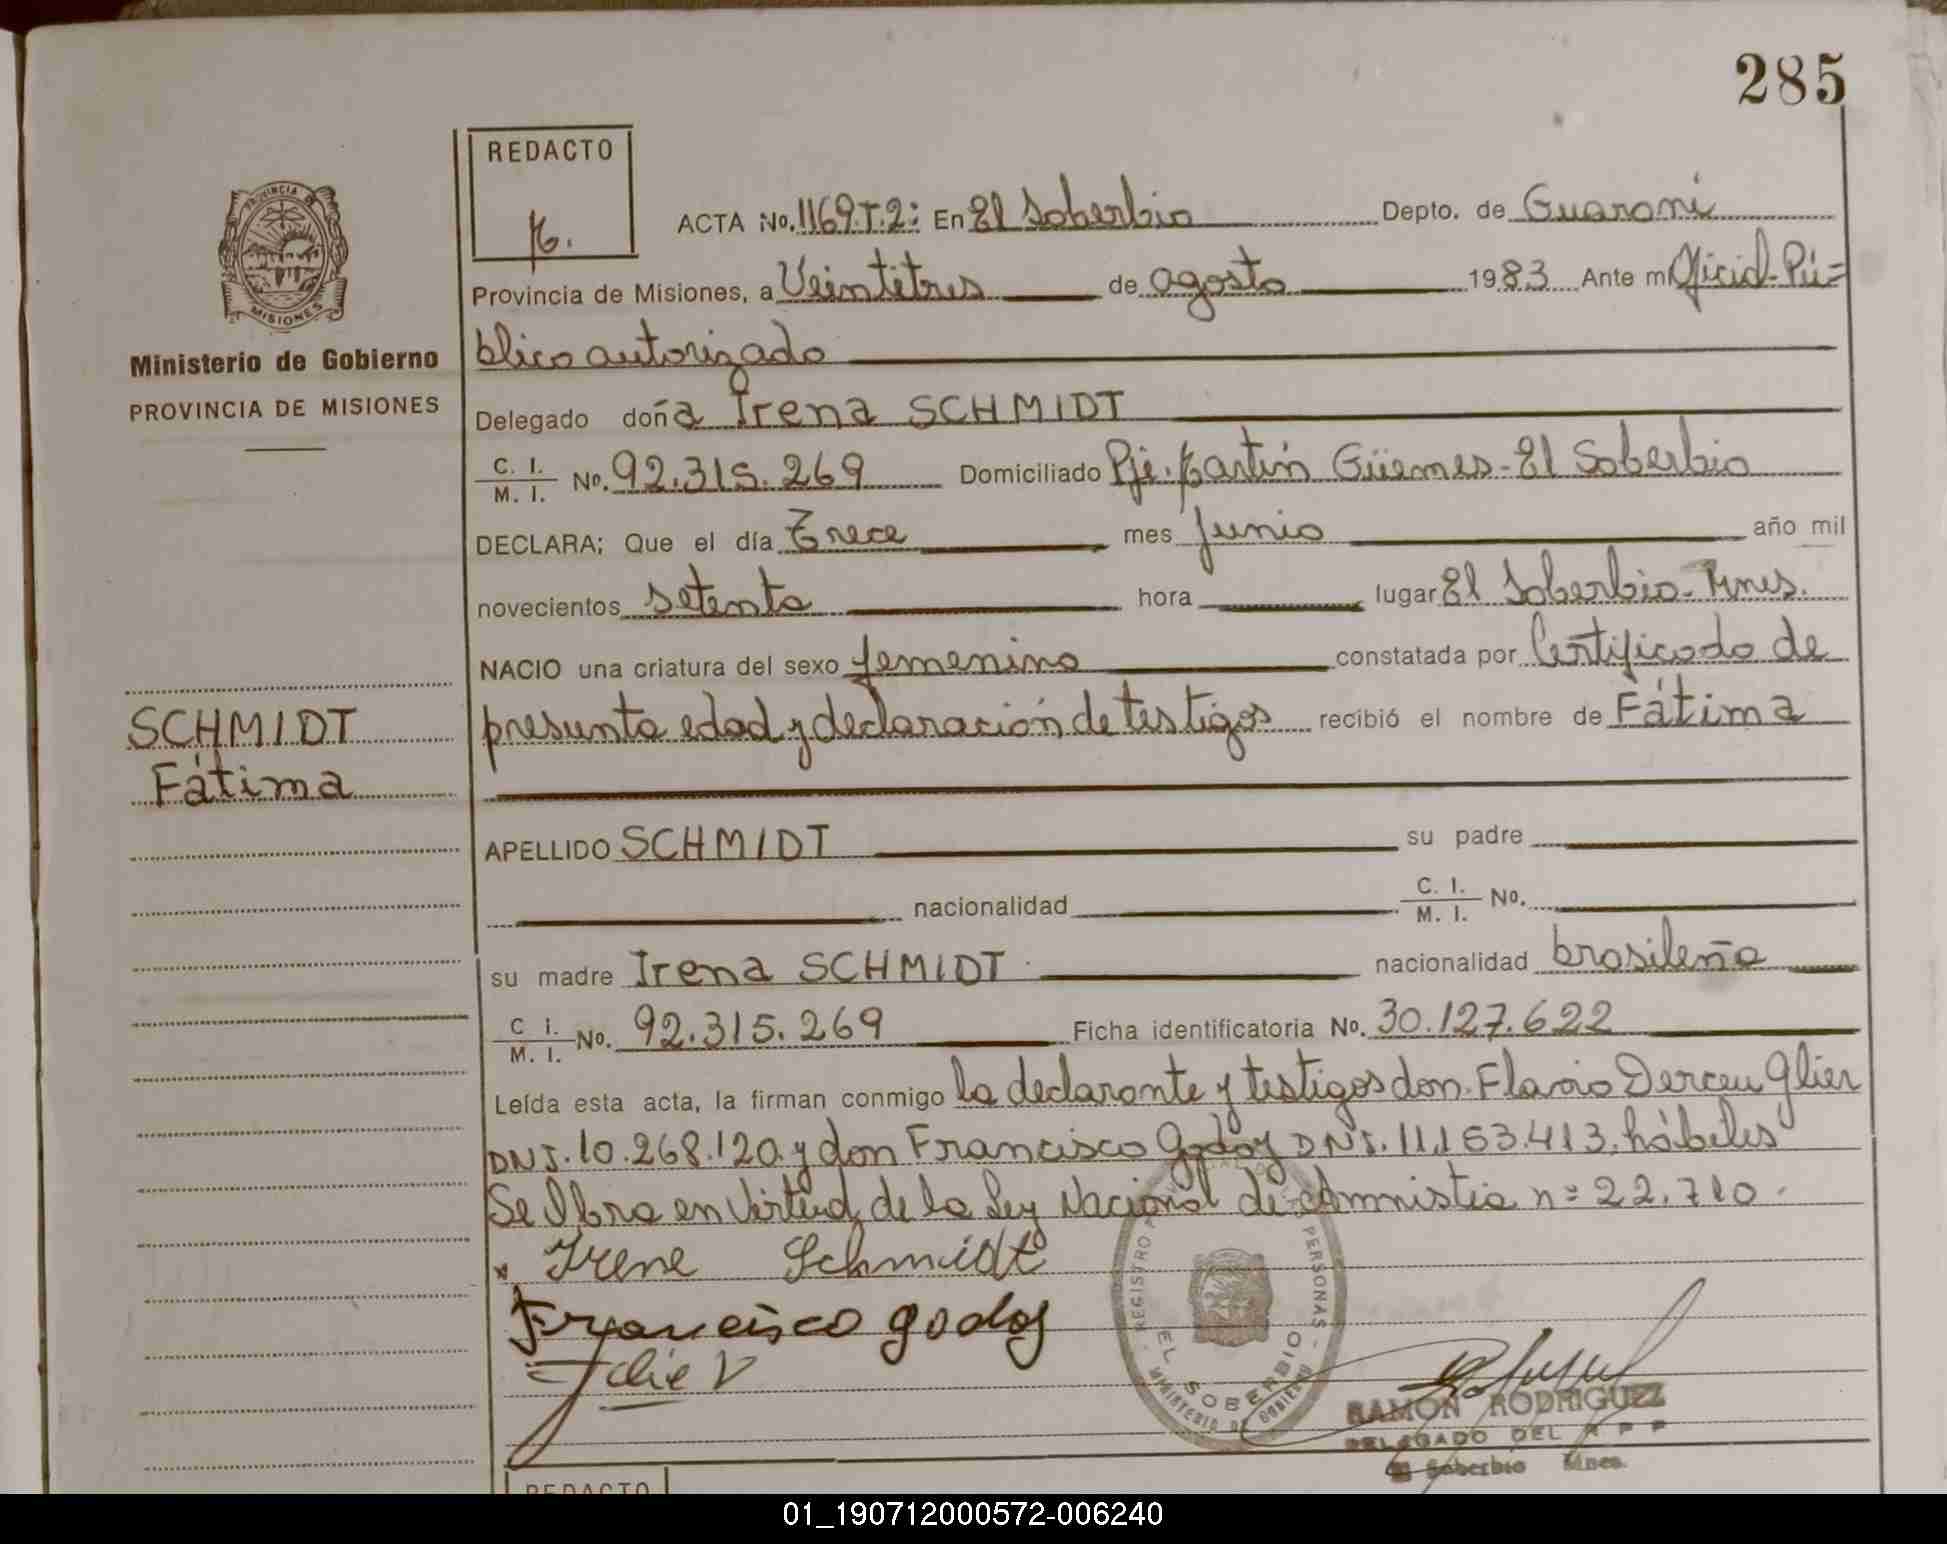 285
REDACTO
ACTA No. 1169.T.2: En El Soberbio Depto. de Guaraní
Provincia de Misiones, a Veintitres de agosto 1983 Ante mi Oficial Pú=
blico autorizado
PROVINCIA DE MISIONES
Ministerio de Gobierno
PROVINCIA DE MISIONES
Delegado doña Irena SCHMIDT
C. I. M. I. No. 92.315.269 Domiciliado Pje. Martín Güemes - El Soberbio
DECLARA; Que el día Trece mes Junio año mil
novecientos setenta hora lugar El Soberbio - Mnes.
NACIO una criatura del sexo femenino constatada por Certificado de
presunta edad y declaración de testigos recibió el nombre de Fátima
SCHMIDT
Fátima
APELLIDO SCHMIDT su padre
nacionalidad C. I. M. I. No.
su madre Irena SCHMIDT nacionalidad brasileña
C I. M. I. No. 92.315.269 Ficha identificatoria No. 30.127.622
Leída esta acta, la firman conmigo la declarante y testigos don Flavio Derceu Glier
DNI. 10.268.120 y don Francisco Godoy DNI. 11.163.413, hábiles
Se labra en Virtud de la Ley Nacional de Amnistia n= 22.710.
Irene Schmidt
Francisco godoy
REGISTRO PERSONAS - EL SOBERBIO - MINISTERIO DE GOBIERNO
RAMON RODRIGUEZ
DELEGADO DEL R P P
El Soberbio Mnes.
REDACTO
01_190712000572-006240